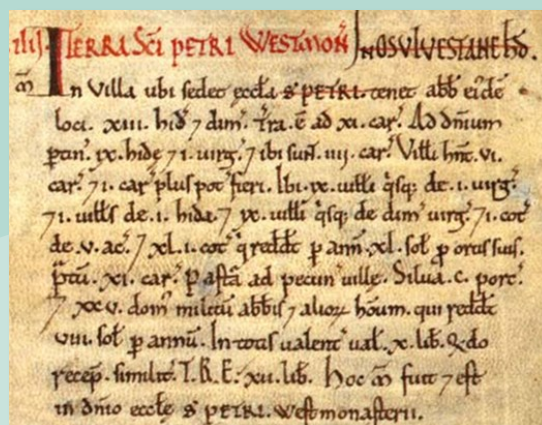 TERRA SCI PETRI WESTMON̄ IN OSVLVESTANE HD̄.
m̄ In Villa ubi sedet æccła S PETRI. tenet abb̄ ei'dē
loci. XIII. hid' 7 dim̄. Tr̄a. ē ad XI. car̄. Ad dn̄ium
ptin̄. IX. hidę 7 I. uirg̃. 7 ibi sun̄. IIII. car̄. Vill̄i hn̄t. VI.
car̄. 7 I. car̄ plus pot̄ fieri. Ibi. IX. uill̄i q̄sq; de. I. uirg̃.
7 I. uill̄s de. I. hida. 7 IX. uill̄i q̄sq; de dim̄ uirg̃. 7 I. cot̄
de. V. ac̄. 7 XL I. cot̄ q̄ redd̄t p ann̄. XL. sol̄ p ortis suis.
p̄tū. XI. car̄. Pastā ad pecun̄ uillę. Silua. C. porc̄.
7 XXV. dom̄ militū abb̄is 7 alioꝝ hōum. qui redd̄t
VIII. sol̄ p annū. In totis ualent̄ ual̄. X. lib̄. Q̄do
recep̄. similit̄. T. R. E.' XII. lib̄. Hoc m̄ fuit 7 est
in dn̄io æccłę S PETRI. westmonasterii.